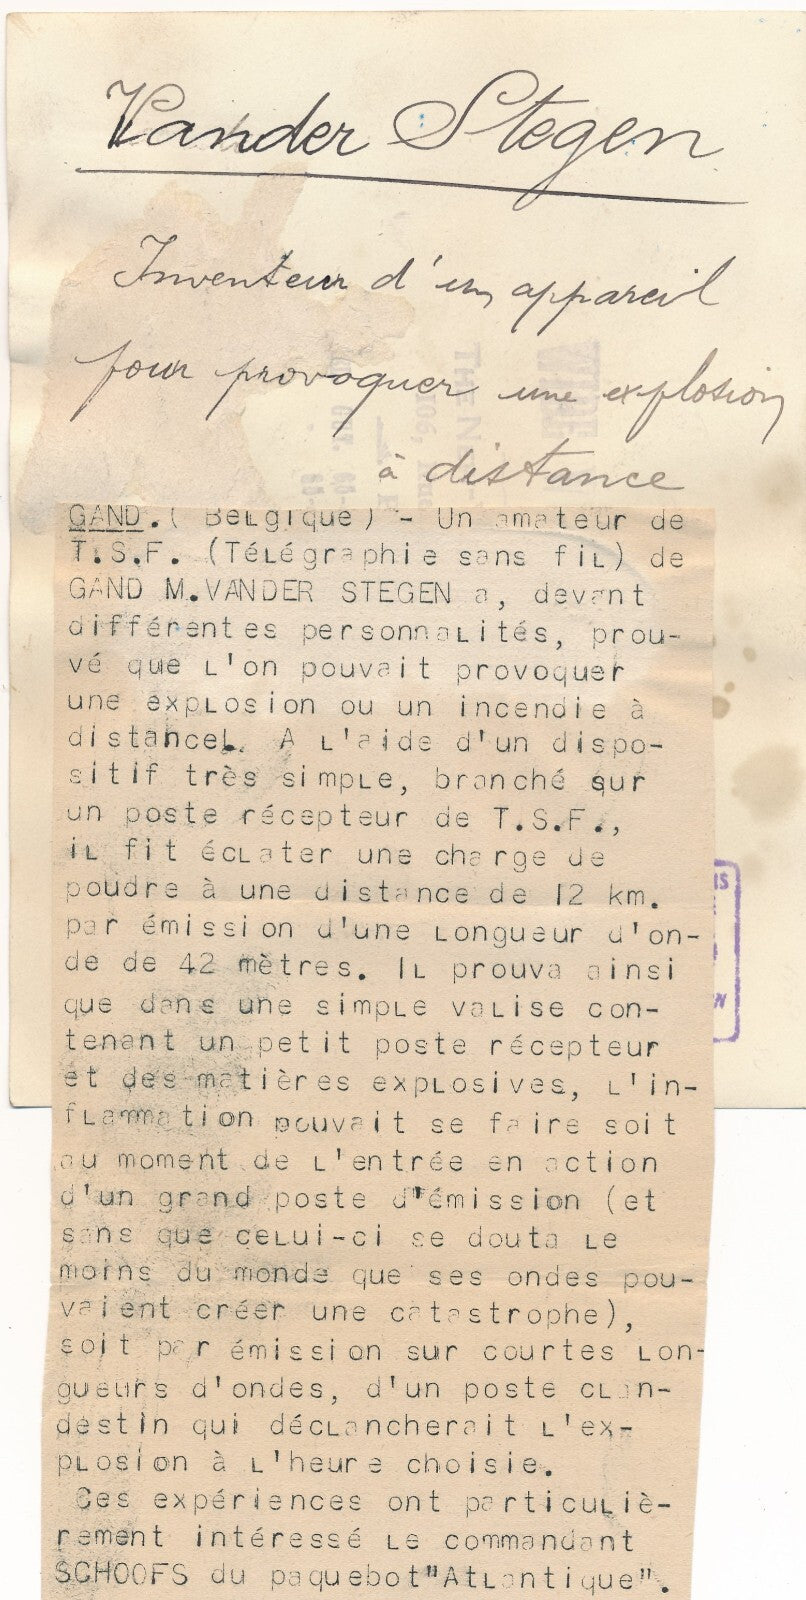 Vander Stegen
Inventeur d'un appareil
pour provoquer une explosion
à distance
GAND.( Belgique) - Un amateur de
T.S.F. (Télégraphie sans fil) de
GAND M.VANDER STEGEN a, devant
différentes personnalités, prou-
vé que l'on pouvait provoquer
une explosion ou un incendie à
distancel. A l'aide d'un dispo-
sitif très simple, branché sur
un poste récepteur de T.S.F.,
il fit éclater une charge de
poudre à une distance de 12 km.
par émission d'une longueur d'on-
de de 42 mètres. Il prouva ainsi
que dans une simple valise con-
tenant un petit poste récepteur
et des matières explosives, l'in-
flammation pouvait se faire soit
au moment de l'entrée en action
d'un grand poste d'émission (et
sans que celui-ci se douta le
moins du monde que ses ondes pou-
vaient créer une catastrophe),
soit par émission sur courtes lon-
gueurs d'ondes, d'un poste clan-
destin qui déclancherait l'ex-
plosion à l'heure choisie.
Ces expériences ont particuliè-
rement intéressé le commandant
SCHOOFS du paquebot"Atlantique".